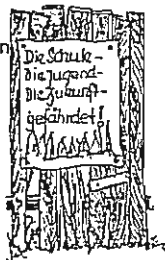 Die Schule-
die Jugend-
die Zukunft-
gefährdet!